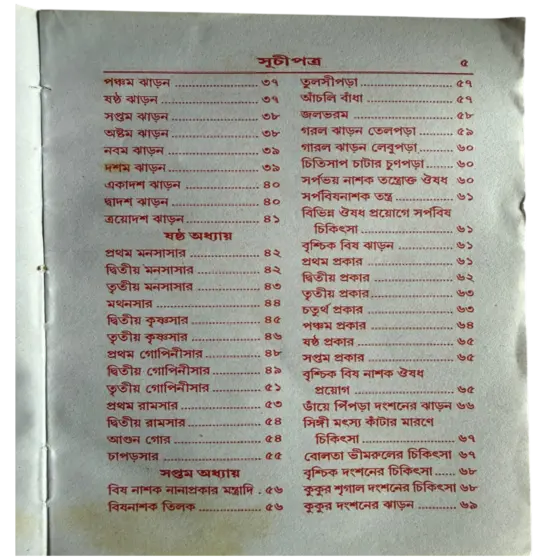 সূচীপত্র ৫
পঞ্চম ঝাড়ন .................... ৩৭
ষষ্ঠ ঝাড়ন ...................... ৩৭
সপ্তম ঝাড়ন .................... ৩৮
অষ্টম ঝাড়ন .................... ৩৮
নবম ঝাড়ন ..................... ৩৯
দশম ঝাড়ন ..................... ৩৯
একাদশ ঝাড়ন ................. ৪০
দ্বাদশ ঝাড়ন ................... ৪০
ত্রয়োদশ ঝাড়ন ................ ৪১
ষষ্ঠ অধ্যায়
প্রথম মনসাসার ................ ৪২
দ্বিতীয় মনসাসার .............. ৪২
তৃতীয় মনসাসার ............... ৪৩
মথনসার ........................ ৪৪
দ্বিতীয় কৃষ্ণসার ............... ৪৫
তৃতীয় কৃষ্ণসার ................ ৪৬
প্রথম গোপিনীসার ............ ৪৮
দ্বিতীয় গোপিনীসার .......... ৪৯
তৃতীয় গোপিনীসার ........... ৫১
প্রথম রামসার .................. ৫৩
দ্বিতীয় রামসার ................ ৫৪
আগুন গোর .................... ৫৪
চাপড়সার ....................... ৫৫
সপ্তম অধ্যায়
বিষ নাশক নানাপ্রকার মন্ত্রাদি . ৫৬
বিষনাশক তিলক .............. ৫৬
তুলসীপড়া ...................... ৫৭
আঁচলি বাঁধা .................... ৫৭
জলভরম ........................ ৫৮
গরল ঝাড়ন তেলপড়া ........ ৫৯
গারল ঝাড়ন লেবুপড়া ........ ৬০
চিতিসাপ চাটার চুণপড়া ...... ৬০
সর্পভয় নাশক তন্ত্রোক্ত ঔষধ ৬০
সর্পবিষনাশক তন্ত্র ............. ৬১
বিভিন্ন ঔষধ প্রয়োগে সর্পবিষ
চিকিৎসা ...................... ৬১
বৃশ্চিক বিষ ঝাড়ন ............. ৬১
প্রথম প্রকার .................... ৬১
দ্বিতীয় প্রকার .................. ৬২
তৃতীয় প্রকার ................... ৬৩
চতুর্থ প্রকার .................... ৬৩
পঞ্চম প্রকার ................... ৬৪
ষষ্ঠ প্রকার ...................... ৬৫
সপ্তম প্রকার .................... ৬৫
বৃশ্চিক বিষ নাশক ঔষধ
প্রয়োগ ........................ ৬৫
ভাঁয়ে পিঁপড়া দংশনের ঝাড়ন ৬৬
সিঙ্গী মৎস্য কাঁটার মারণে
চিকিৎসা ...................... ৬৭
বোলতা ভীমরুলের চিকিৎসা ৬৭
বৃশ্চিক দংশনের চিকিৎসা ..... ৬৮
কুকুর শৃগাল দংশনের চিকিৎসা ৬৮
কুকুর দংশনের ঝাড়ন .......... ৬৯